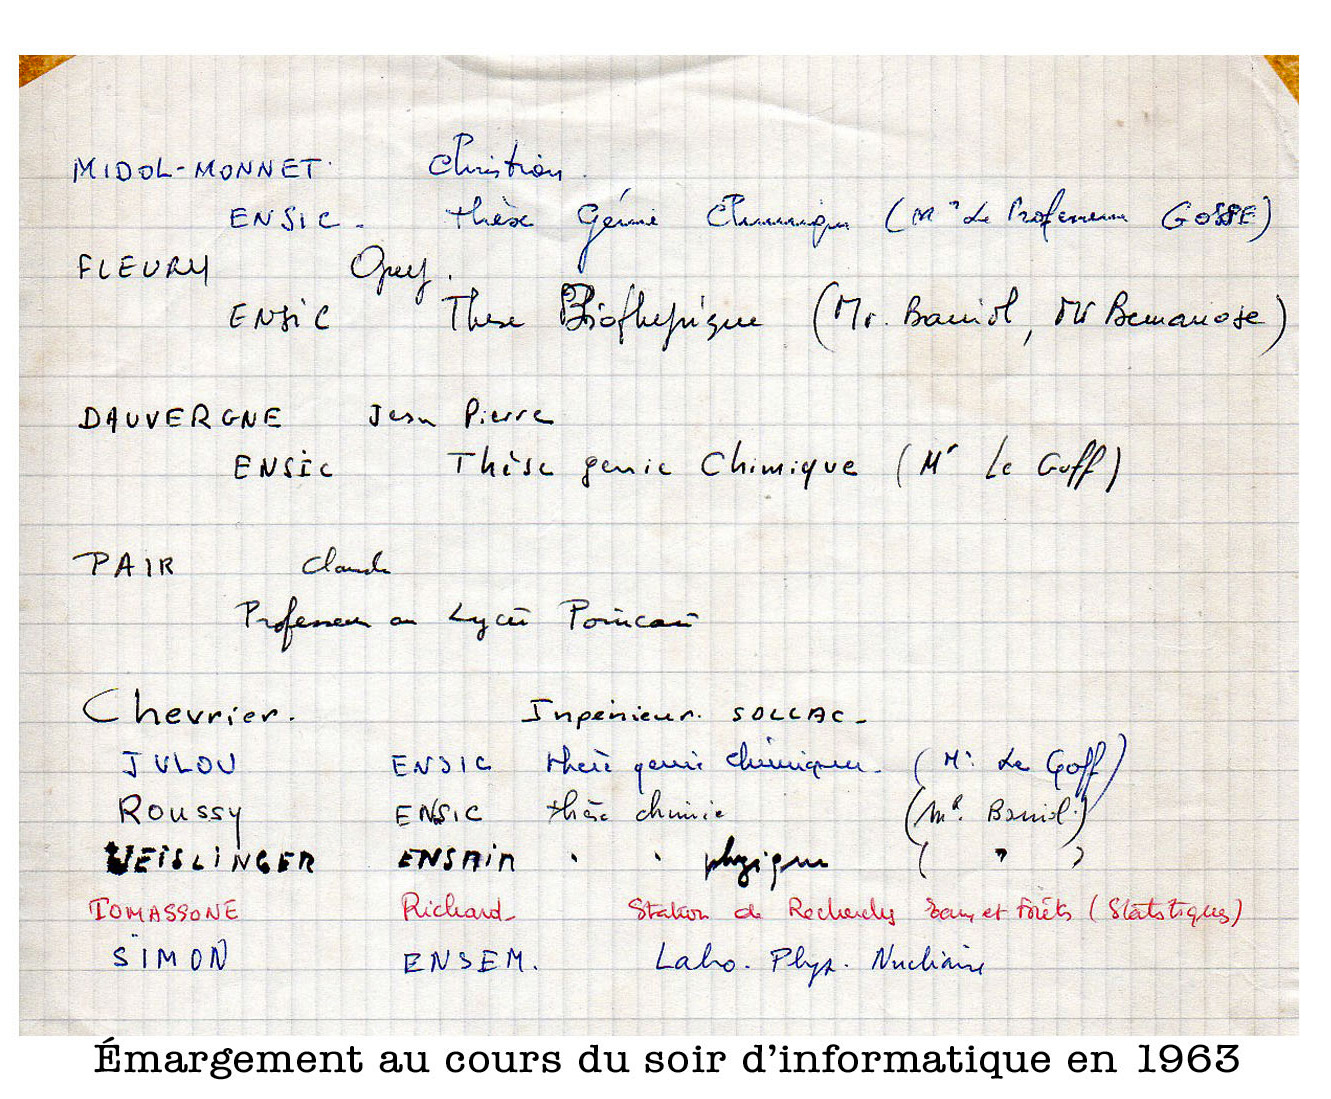 MIDOL-MONNET Christian.
ENSIC. thèse Génie Chimique (Mr Le Professeur GOSSE)
FLEURY Guy.
ENSIC These Biophysique (Mr. Baniol, Mr Bernanose)
DAUVERGNE Jean Pierre
ENSIC Thèse genie Chimique (Mr Le Goff)
PAIR Claude
Professeur au Lycée Poincaré
Chevrier. Ingénieur. SOLLAC_
JULOU ENSIC thèse genie chimique. (Mr Le Goff)
Roussy ENSIC thèse chimie (Mr. Baniol.)
WEISLINGER physique ( " )
TOMASSONE Richard_ Station de Recherches Eaux et Forêts (Statistiques)
SIMON ENSEM. Labo. Phys. Nucléaire
Émargement au cours du soir d'informatique en 1963